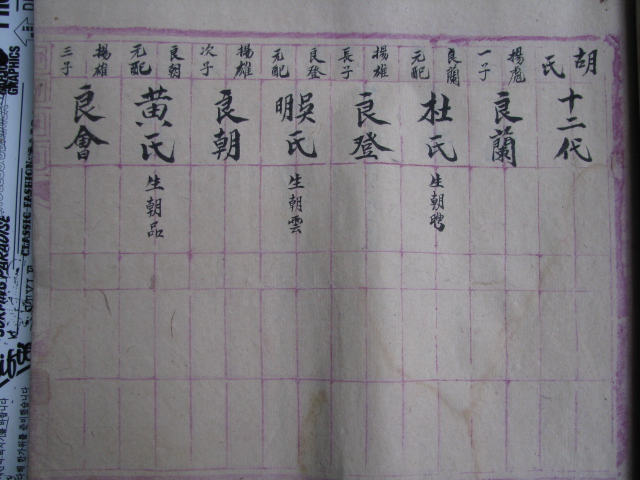 胡氏十二代
揚彪一子
良蘭
良蘭元配
杜氏
生朝聘
揚雄長子
良登
良登元配
明吳氏
生朝雲
揚雄次子
良朝
良朝元配
黃氏
生朝品
揚雄三子
良會
CLASSIC FASHION